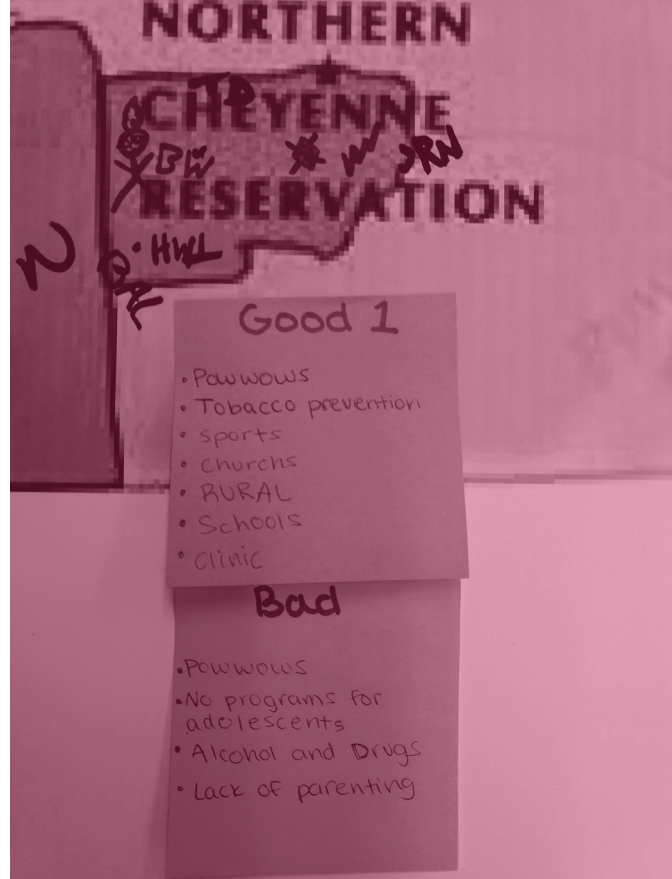 NORTHERN
CHEYENNE
RESERVATION
BW
RN
HWL
Good 1
• Powwows
• Tobacco prevention
• Sports
• Churchs
• RURAL
• Schools
• Clinic
Bad
• Powwows
• No programs for
adolescents
• Alcohol and Drugs
• Lack of parenting